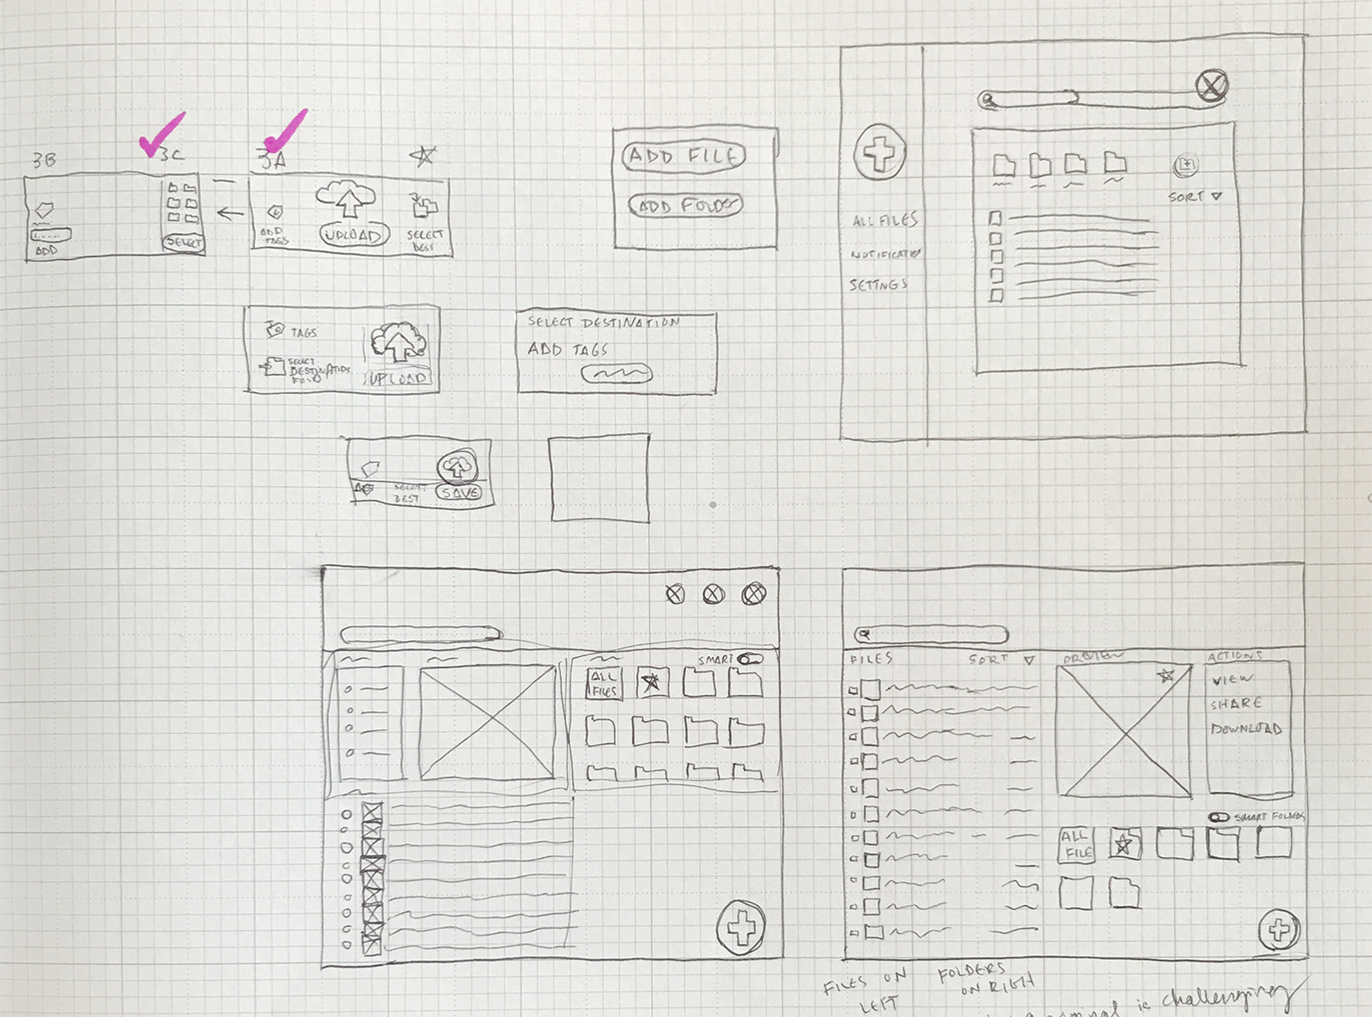 3B
3C
3A
ADD
SELECT
ADD
TAGS
UPLOAD
SELECT
DEST
ADD FILE
ADD FOLDER
ALL FILES
NOTIFICATION
SETTNGS
SORT
TAGS
SELECT
DESTINATION
UPLOAD
SELECT DESTINATION
ADD TAGS
SELECT
DEST
SAVE
SMART
ALL
FILES
FILES
SORT
PREVIEW
ACTIONS
VIEW
SHARE
DOWNLOAD
SMART FOLDERS
ALL
FILE
FILES ON
LEFT
FOLDERS
ON RIGH
is challenging